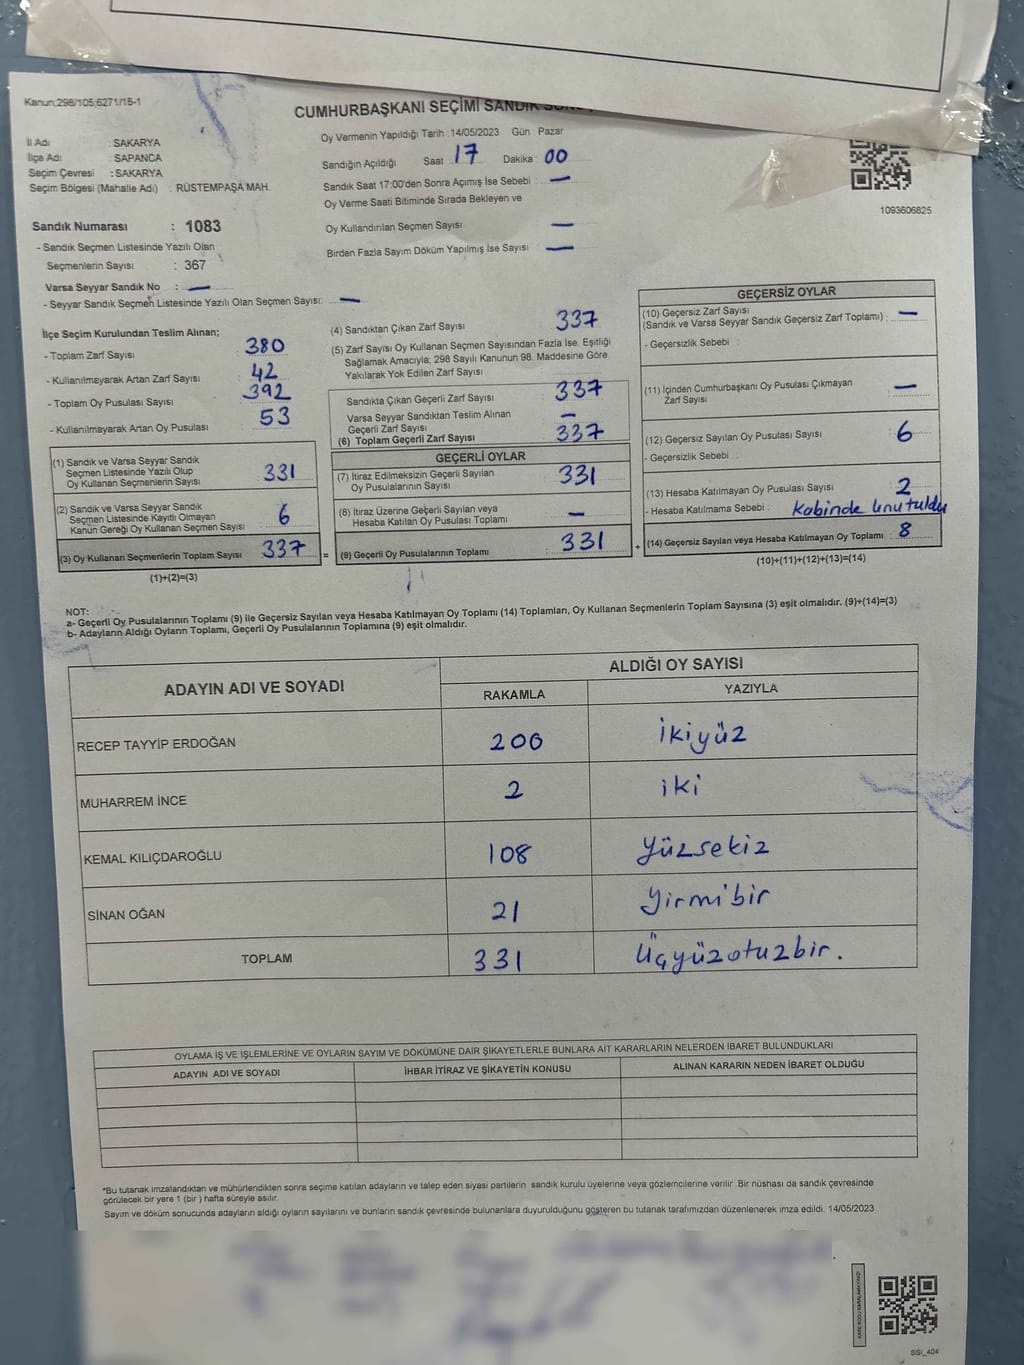 Kanun;298/105;6271/15-1
CUMHURBAŞKANI SEÇİMİ SANDIK
İl Adı : SAKARYA
İlçe Adı : SAPANCA
Seçim Çevresi : SAKARYA
Seçim Bölgesi (Mahalle Adı) : RÜSTEMPAŞA MAH.
Oy Vermenin Yapıldığı Tarih : 14/05/2023 Gün : Pazar
Sandığın Açıldığı Saat 17 Dakika 00
Sandık Saat 17:00'den Sonra Açımış İse Sebebi : —
Oy Verme Saati Bitiminde Sırada Bekleyen ve
Oy Kullandırılan Seçmen Sayısı —
Birden Fazla Sayım Döküm Yapılmış İse Sayısı : —
1093606825
Sandık Numarası : 1083
- Sandık Seçmen Listesinde Yazılı Olan
Seçmenlerin Sayısı : 367
Varsa Seyyar Sandık No : —
- Seyyar Sandık Seçmen Listesinde Yazılı Olan Seçmen Sayısı: —
İlçe Seçim Kurulundan Teslim Alınan;
- Toplam Zarf Sayısı : 380
- Kullanılmayarak Artan Zarf Sayısı : 42
- Toplam Oy Pusulası Sayısı : 392
- Kullanılmayarak Artan Oy Pusulası : 53
(1) Sandık ve Varsa Seyyar Sandık
Seçmen Listesinde Yazılı Olup
Oy Kullanan Seçmenlerin Sayısı : 331
(2) Sandık ve Varsa Seyyar Sandık
Seçmen Listesinde Kayıtlı Olmayan
Kanun Gereği Oy Kullanan Seçmen Sayısı : 6
(3) Oy Kullanan Seçmenlerin Toplam Sayısı : 337 =
(1)+(2)=(3)
(4) Sandıktan Çıkan Zarf Sayısı : 337
(5) Zarf Sayısı Oy Kullanan Seçmen Sayısından Fazla İse, Eşitliği
Sağlamak Amacıyla; 298 Sayılı Kanunun 98. Maddesine Göre
Yakılarak Yok Edilen Zarf Sayısı :
Sandıkta Çıkan Geçerli Zarf Sayısı : 337
Varsa Seyyar Sandıktan Teslim Alınan
Geçerli Zarf Sayısı : —
(6) Toplam Geçerli Zarf Sayısı : 337
GEÇERLİ OYLAR
(7) İtiraz Edilmeksizin Geçerli Sayılan
Oy Pusulalarının Sayısı : 331
(8) İtiraz Üzerine Geçerli Sayılan veya
Hesaba Katılan Oy Pusulası Toplamı : —
(9) Geçerli Oy Pusulalarının Toplamı : 331 +
GEÇERSİZ OYLAR
(10) Geçersiz Zarf Sayısı
(Sandık ve Varsa Seyyar Sandık Geçersiz Zarf Toplamı) : —
- Geçersizlik Sebebi :
(11) İçinden Cumhurbaşkanı Oy Pusulası Çıkmayan
Zarf Sayısı : —
(12) Geçersiz Sayılan Oy Pusulası Sayısı : 6
- Geçersizlik Sebebi :
(13) Hesaba Katılmayan Oy Pusulası Sayısı : 2
- Hesaba Katılmama Sebebi : Kabinde Unutuldu
(14) Geçersiz Sayılan veya Hesaba Katılmayan Oy Toplamı : 8
(10)+(11)+(12)+(13)=(14)
NOT:
a- Geçerli Oy Pusulalarının Toplamı (9) ile Geçersiz Sayılan veya Hesaba Katılmayan Oy Toplamı (14) Toplamları, Oy Kullanan Seçmenlerin Toplam Sayısına (3) eşit olmalıdır. (9)+(14)=(3)
b- Adayların Aldığı Oyların Toplamı, Geçerli Oy Pusulalarının Toplamına (9) eşit olmalıdır.
ADAYIN ADI VE SOYADI ALDIĞI OY SAYISI
RAKAMLA YAZIYLA
RECEP TAYYİP ERDOĞAN 200 ikiyüz
MUHARREM İNCE 2 iki
KEMAL KILIÇDAROĞLU 108 yüzsekiz
SİNAN OĞAN 21 yirmibir
TOPLAM 331 Üçyüzotuzbir.
OYLAMA İŞ VE İŞLEMLERİNE VE OYLARIN SAYIM VE DÖKÜMÜNE DAİR ŞİKAYETLERLE BUNLARA AİT KARARLARIN NELERDEN İBARET BULUNDUKLARI
ADAYIN ADI VE SOYADI İHBAR İTİRAZ VE ŞİKAYETİN KONUSU ALINAN KARARIN NEDEN İBARET OLDUĞU
*Bu tutanak imzalandıktan ve mühürlendikten sonra seçime katılan adayların ve talep eden siyasi partilerin sandık kurulu üyelerine veya gözlemcilerine verilir. Bir nüshası da sandık çevresinde
görülecek bir yere 1 (bir) hafta süreyle asılır.
Sayım ve döküm sonucunda adayların aldığı oyların sayılarını ve bunların sandık çevresinde bulunanlara duyurulduğunu gösteren bu tutanak tarafımızdan düzenlenerek imza edildi. 14/05/2023
KARE KODU KARALAMAYINIZ!
SSI_404